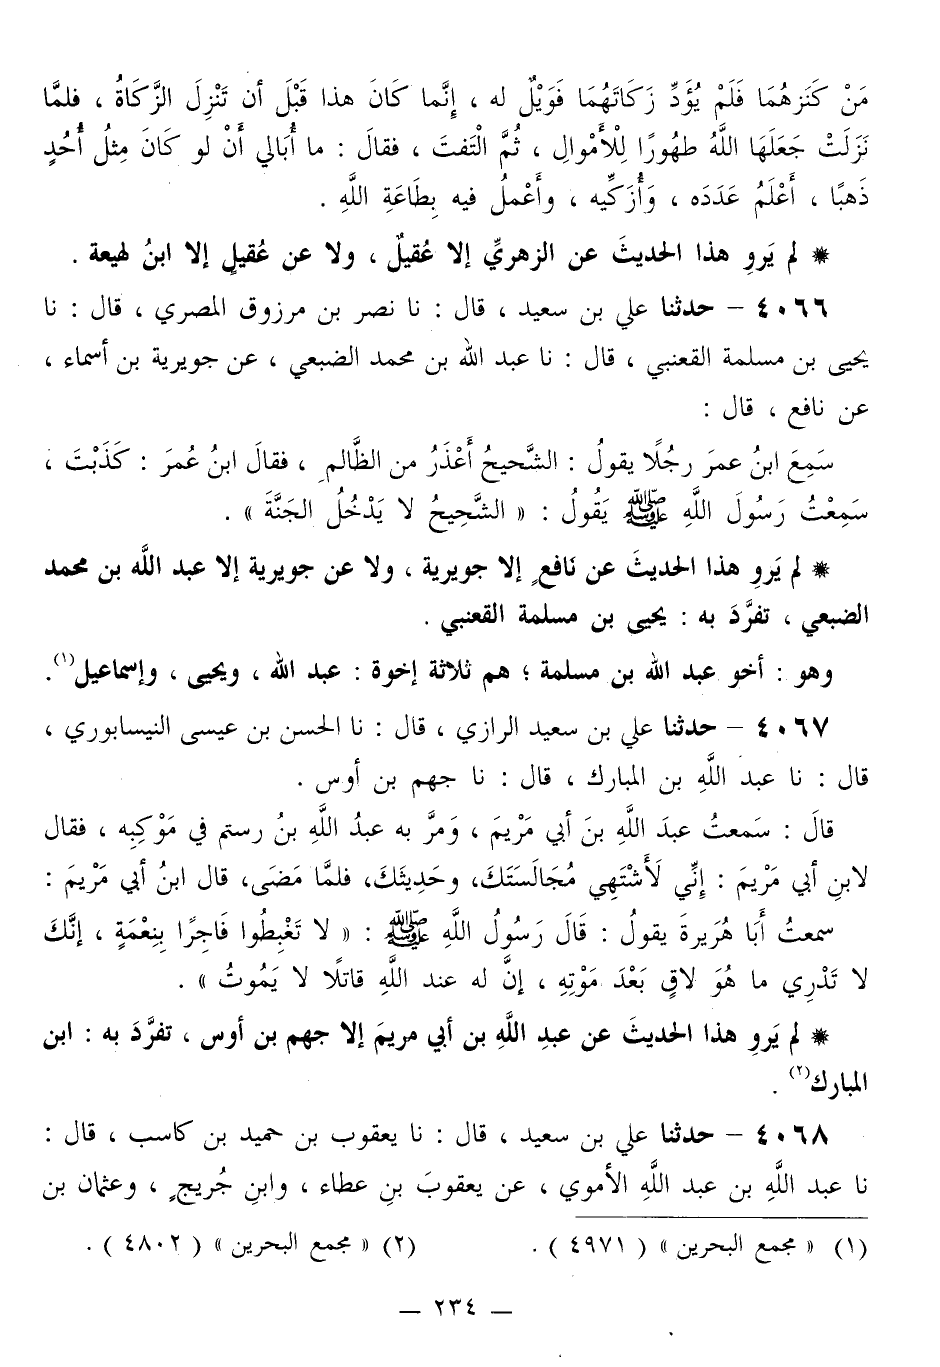 مَنْ كَنَزَهُمَا فَلَمْ يُؤَدِّ زَكَاتَهُمَا فَوَيْلٌ له ، إِنَّما كَانَ هذا قَبْلَ أن تَنْزِلَ الزَّكَاةُ ، فلمَّا
نَزَلَتْ جَعَلَهَا اللَّهُ طهُورًا لِلْأَمْوالِ ، ثُمَّ الْتَفتَ ، فقالَ : ما أُبَالي أَنْ لو كَانَ مِثلُ أُحُدٍ
ذَهبًا ، أَعْلَمُ عَدَدَه ، وَأُزَكِّيه ، وأَعْملُ فيه بِطَاعَةِ اللَّهِ .
* لم يَروِ هذا الحديثَ عن الزهريِّ إلا عُقيلٌ ، ولا عن عُقيلٍ إلا ابنُ لهيعة .
٤٠٦٦ – حدثنا علي بن سعيد ، قال : نا نصر بن مرزوق المصري ، قال : نا
يحيى بن مسلمة القعنبي ، قال : نا عبد الله بن محمد الضبعي ، عن جويرية بن أسماء ،
عن نافع ، قال :
سَمِعَ ابنُ عمرَ رجُلًا يقولُ : الشَّحيحُ أَعْذَرُ من الظَّالمِ ، فقالَ ابنُ عُمرَ : كَذَبْتَ ،
سَمِعْتُ رَسُولَ اللَّهِ ﷺ يَقُولُ : « الشَّحِيحُ لا يَدْخُلُ الجَنَّةَ » .
* لم يَروِ هذا الحديثَ عن نَافعٍ إلا جويرية ، ولا عن جويرية إلا عبد اللَّه بن محمد
الضبعي ، تفرَّدَ به : يحيى بن مسلمة القعنبي .
وهو : أخو عبد الله بن مسلمة ؛ هم ثلاثة إخوة : عبد الله ، ويحيى ، وإسماعيل(١).
٤٠٦٧ – حدثنا علي بن سعيد الرازي ، قال : نا الحسن بن عيسى النيسابوري ،
قال : نا عبد اللَّهِ بن المبارك ، قال : نا جهم بن أوس .
قالَ : سَمعتُ عبدَ اللَّهِ بنَ أبي مَرْيمَ ، وَمرَّ به عبدُ اللَّهِ بنُ رستم في مَوْكِبِه ، فقال
لابنِ أبي مَرْيمَ : إِنِّي لَأَشْتَهِي مُجَالَسَتَكَ، وحَدِيثَكَ، فلمَّا مَضَى، قال ابنُ أبي مَرْيمَ :
سمعتُ أَبَا هُرَيرةَ يقولُ : قَالَ رَسُولُ اللَّهِ ﷺ : « لا تَغْبِطُوا فَاجِرًا بِنِعْمَةٍ ، إنَّكَ
لا تَدْرِي ما هُوَ لاقٍ بَعْدَ مَوْتِهِ ، إنَّ له عند اللَّهِ قاتلًا لا يَمُوتُ » .
* لم يَروِ هذا الحديثَ عن عبدِ اللَّهِ بن أبي مريمَ إلا جهم بن أوس ، تفرَّدَ به : ابن
المبارك(٢) .
٤٠٦٨ – حدثنا علي بن سعيد ، قال : نا يعقوب بن حميد بن كاسب ، قال :
نا عبد اللَّهِ بن عبد اللَّهِ الأموي ، عن يعقوبَ بنِ عطاء ، وابنِ جُريجٍ ، وعثمان بن
(١) « مجمع البحرين » ( ٤٩٧١ ) . (٢) « مجمع البحرين » ( ٤٨٠٢ ) .
— ٢٣٤ —